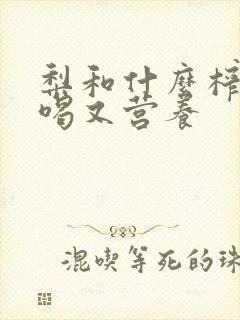 梨和什麼榨
喝又营养
混喫等死的珠